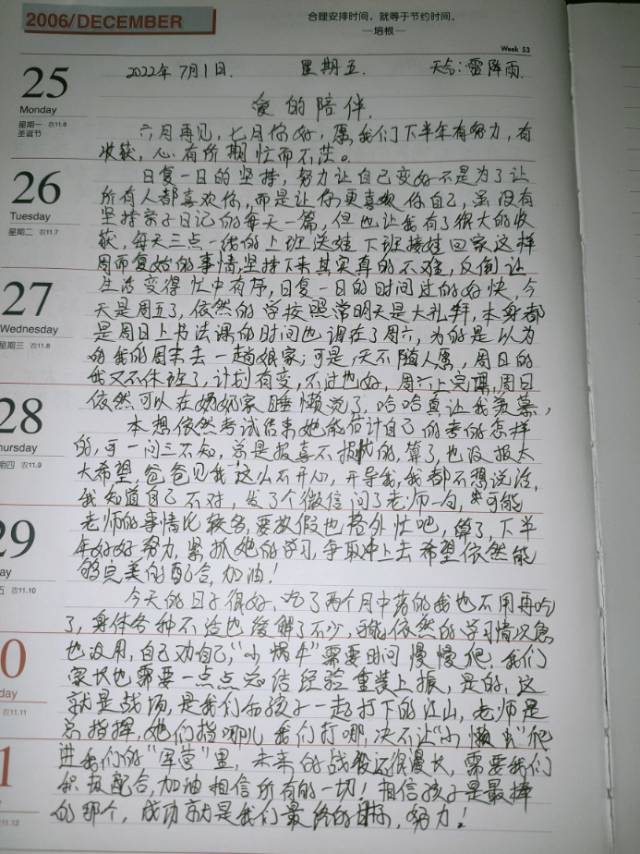 2006/DECEMBER
合理安排时间，就等于节约时间。
—培根—
Week 53
25
Monday
星期一 农11.6
圣诞节
26
Tuesday
星期二 农11.7
27
Wednesday
星期三 农11.8
28
Thursday
星期四 农11.9
29
农11.10
0
农11.11
1
农11.12
2022年7月1日. 星期五. 天气:雷阵雨
爱的陪伴.
六月再见,七月你好,愿我们下半年有努力,有
收获,心有所期忙而不茫。
日复一日的坚持,努力让自己变好不是为了让
所有人都喜欢你,而是让你更喜欢你自己,虽没有
坚持亲子日记的每天一篇,但也让我有了很大的收
获,每天三点一线的上班送娃下班接娃回家这样
周而复始的事情,坚持下来其实真的不难,反倒让
生活变得忙中有序,日复一日的时间过的好快,今
天是周五了,依然的学校照常明天是大礼拜,本身都
是周日上书法课的时间也调在了周六,为的是以为
的我的周末去一趟娘家,可是,天不随人愿,周日的
我又不休班了,计划有变,不过也好,周六上完课,周日
依然可以在她奶家睡懒觉了,哈哈真让我羡慕,
本想依然考试结束她能估计自己的考的怎样
的,可一问三不知,总是报喜不报忧的,算了,也没报太
大希望,爸爸见我这么不开心,开导我,我都不想说话,
我知道自己不对,发了个微信问了老师一句,可能
老师的事情比较多,要放假也格外忙吧,算了,下半
年好好努力,紧抓她的学习,争取冲上去希望依然能
够完美的配合,加油!
今天的日子很好,吃了两个月中药的我也不用再吃
了,身体各种不适也缓解了不少,依然的学习情况急
也没用,自己劝自己,"小蜗牛"需要时间慢慢爬,我们
家长也需要一点点总结经验重装上振,是的,这
就是战场,是我们和孩子一起打下的江山,老师是
总指挥,她们指哪儿我们打哪,决不让"小懒虫"爬
进我们的"军营"里,未来的战役还很漫长,需要我们
积极配合,加油相信所有的一切!相信孩子是最棒
的那个,成功就是我们最终的目标,努力!